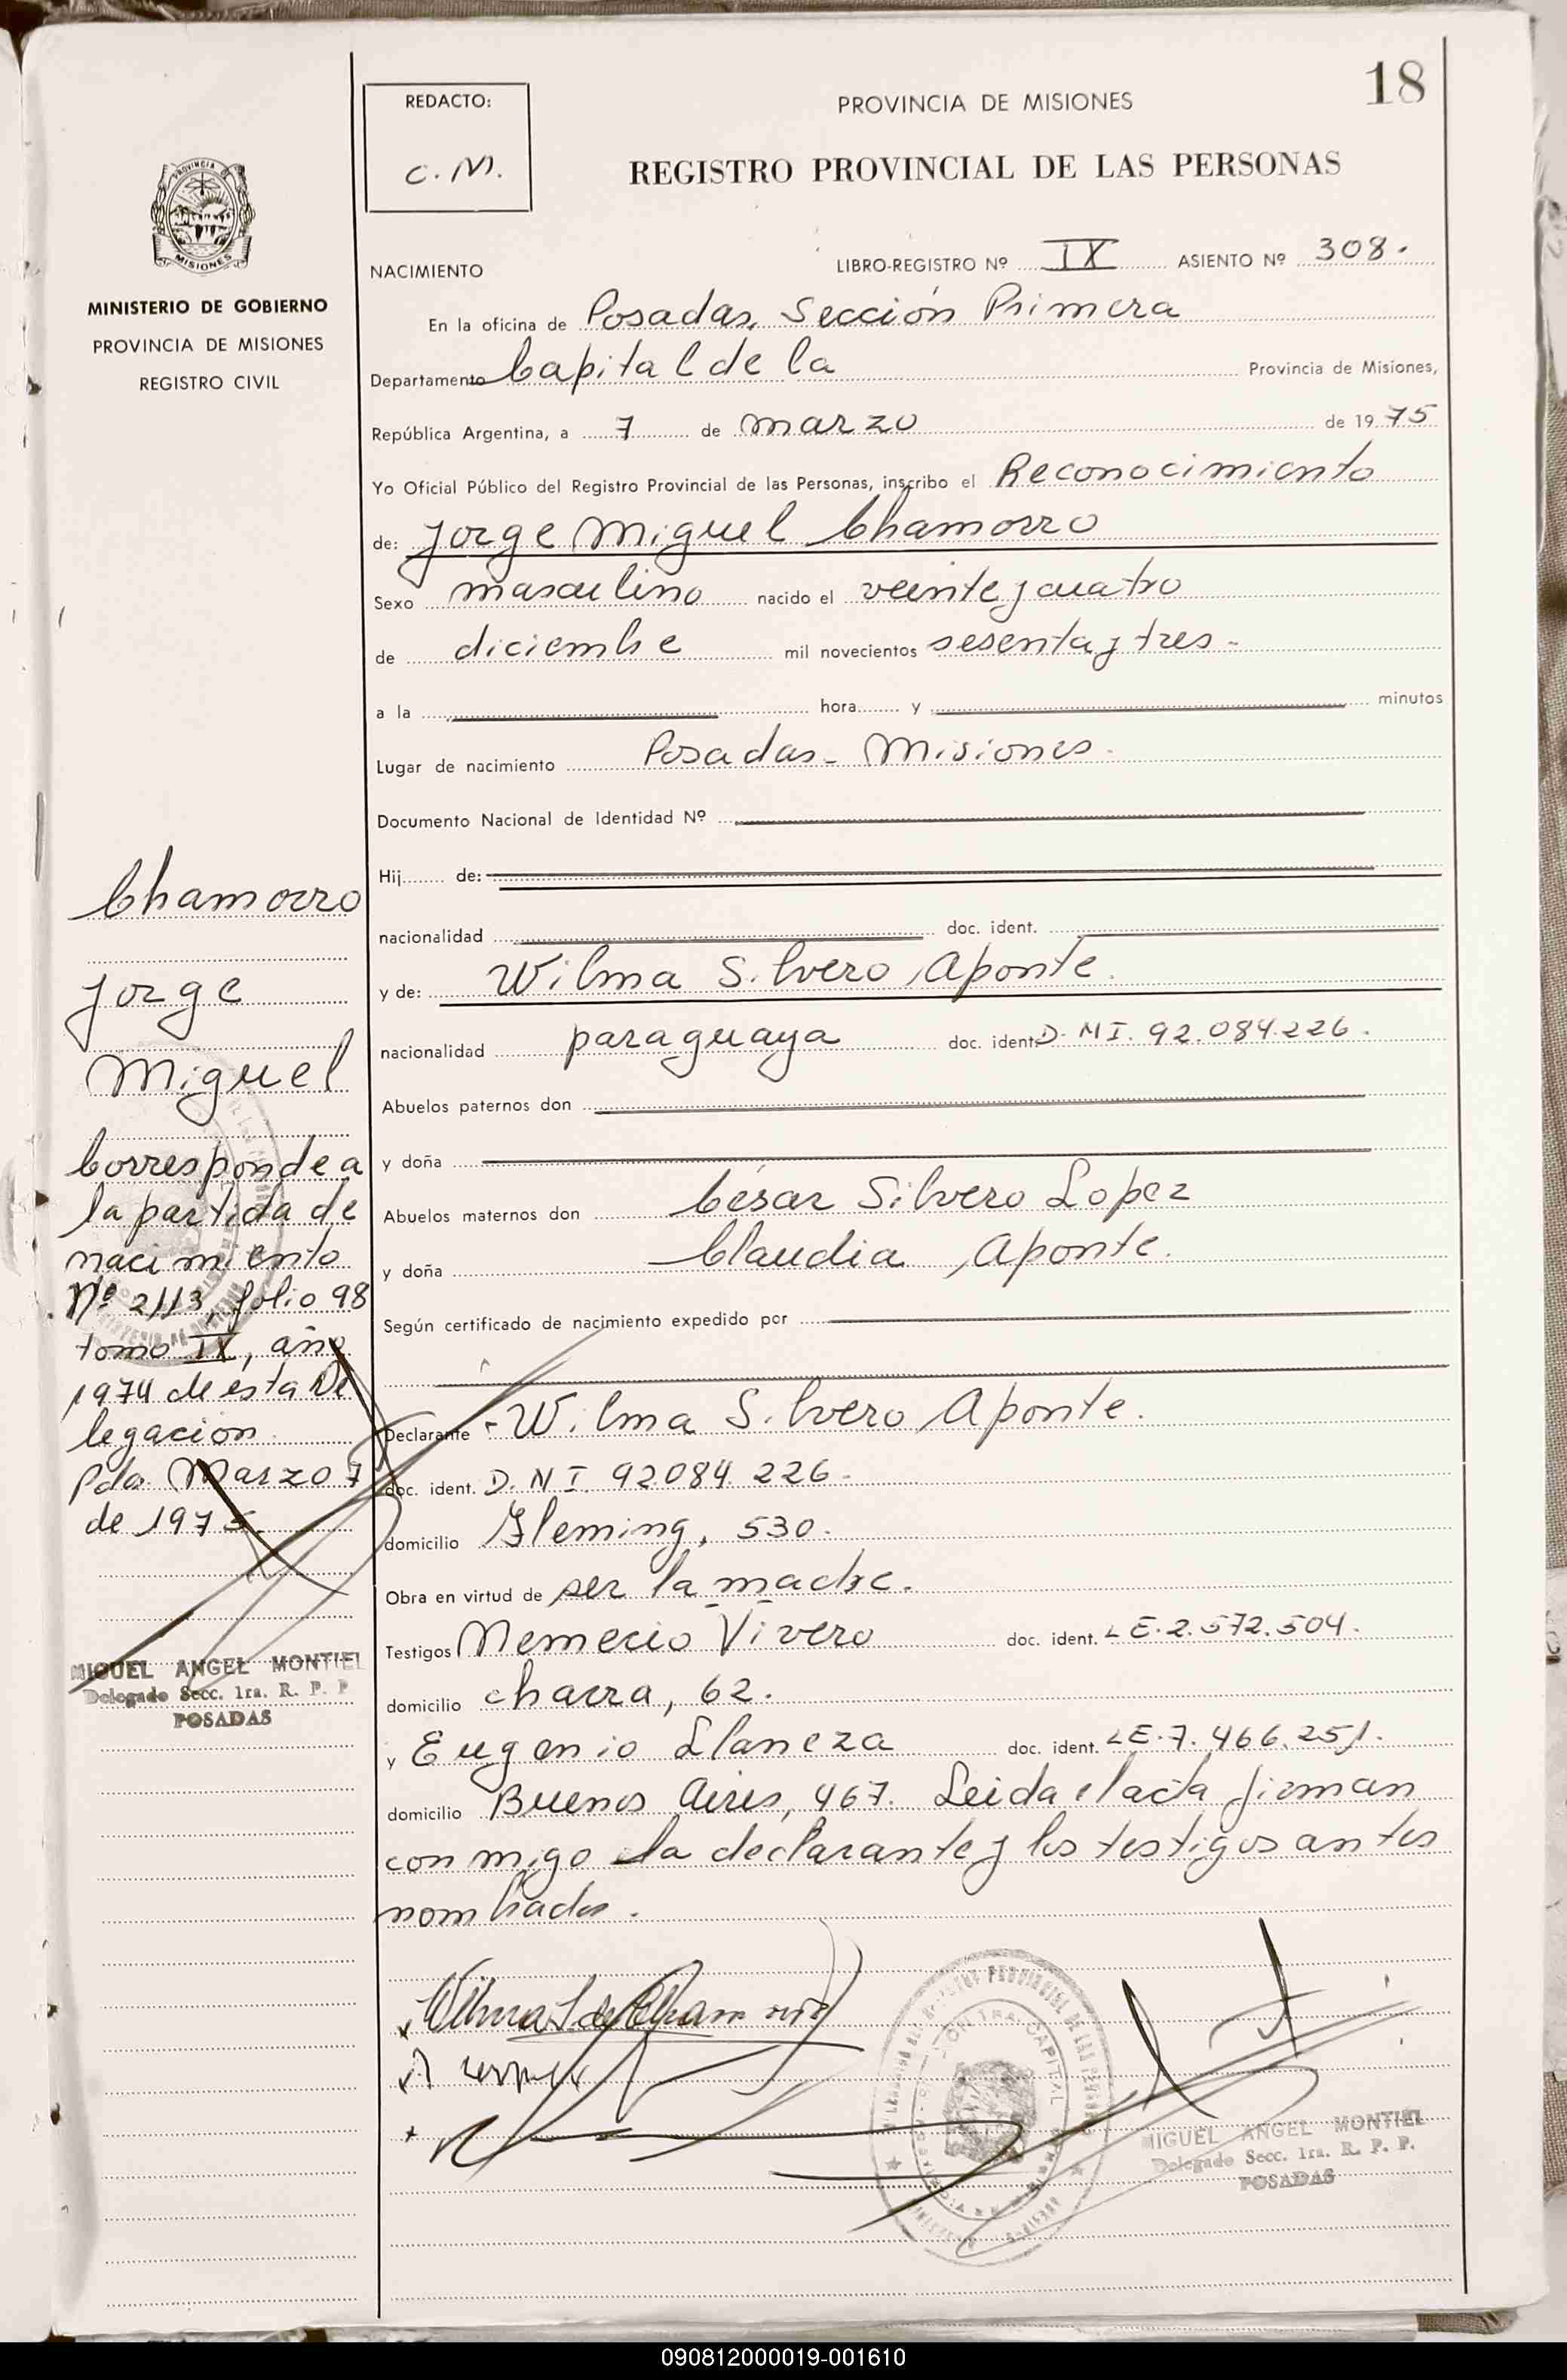 18
REDACTO:
C. M.
PROVINCIA DE MISIONES
REGISTRO PROVINCIAL DE LAS PERSONAS
PROVINCIA DE
MISIONES
MINISTERIO DE GOBIERNO
PROVINCIA DE MISIONES
REGISTRO CIVIL
NACIMIENTO
LIBRO-REGISTRO Nº IX ASIENTO Nº 308.
En la oficina de Posadas, Sección Primera
Departamento Capital de la Provincia de Misiones,
República Argentina, a 7 de marzo de 1975
Yo Oficial Público del Registro Provincial de las Personas, inscribo el Reconocimiento
de: Jorge Miguel Chamorro
Sexo masculino nacido el veinte y cuatro
de diciembre mil novecientos sesenta y tres -
a la hora y minutos
Lugar de nacimiento Posadas - Misiones.
Documento Nacional de Identidad Nº
Hij de:
nacionalidad doc. ident.
y de: Wilma Silvero Aponte.
nacionalidad paraguaya doc. ident. D. NI. 92.084.226.
Abuelos paternos don
y doña
Abuelos maternos don César Silvero Lopez
y doña Claudia Aponte.
Según certificado de nacimiento expedido por
Declarante - Wilma Silvero Aponte.
doc. ident. D. N I. 92084.226-
domicilio Fleming, 530.
Obra en virtud de ser la madre.
Testigos Nemecio Vivero doc. ident. LE. 2.572.504.
domicilio charra, 62.
y Eugenio Llaneza doc. ident. LE. 7.466.251.
domicilio Buenos Aires, 467. Leida el acta firman
con migo la declarante y los testigos antes
nombrados.
Chamorro
Jorge
Miguel
Corresponde a
la partida de
nacimiento
Nº 2113, folio 98
tomo IX, año
1974 de esta De
legación.
Pdas. Marzo 7
de 1975.
MIGUEL ANGEL MONTIEL
Delegado Secc. 1ra. R. P. P.
POSADAS
Wilma S. de Chamorro
MIGUEL ANGEL MONTIEL
Delegado Secc. 1ra. R. P. P.
POSADAS
090812000019-001610